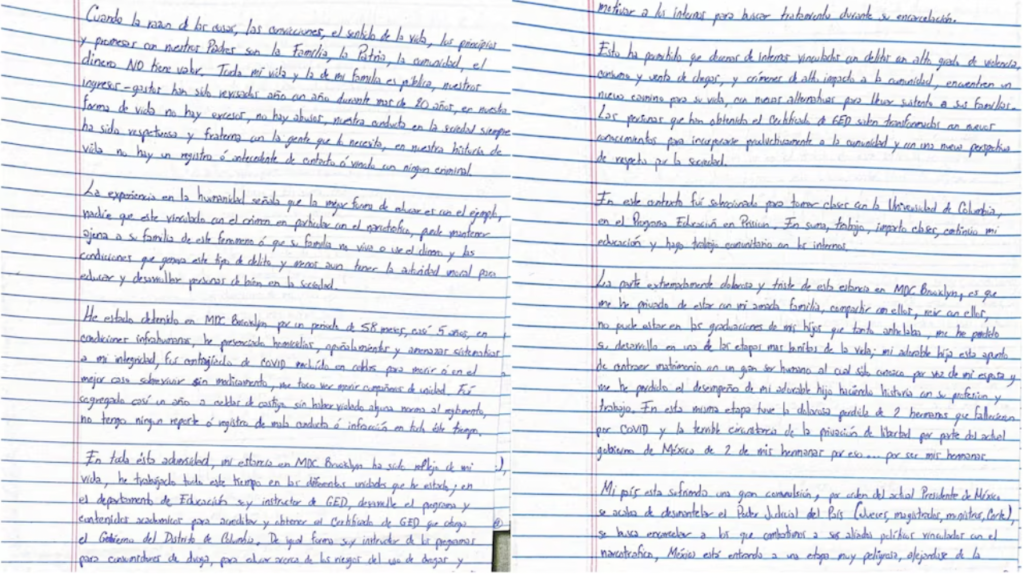 Cuando la razon de las cosas, las convicciones, el sentido de la vida, los principios
y promesas con nuestros Padres son la Familia, la Patria, la comunidad, el
dinero NO tiene valor. Toda mi vida y la de mi familia es pública, nuestros
ingresos-gastos han sido revisados año con año durante mas de 20 años, en nuestra
forma de vida no hay excesos, no hay abusos, nuestra conducta en la sociedad siempre
ha sido respetuosa y fraterna con la gente que lo necesita, en nuestra historia de
vida no hay un registro ó antecedente de contacto ó vinculo con ningun criminal.
La experiencia en la humanidad señala que la mejor forma de educar es con el ejemplo,
nadie que este vinculado con el crimen en particular con el narcotrafico, puede mantener
ajena a su familia de este fenomeno ó que su familia no viva o use el dinero y las
condiciones que genera este tipo de delito y menos aun tener la autoridad moral para
educar y desarrollar personas de bien en la sociedad.
He estado detenido en MDC Brooklyn por un periodo de 58 meses, casi 5 años, en
condiciones infrahumanas, he presenciado homicidios, apuñalamientos y amenazas sistematicas
a mi integridad, fui contagiado de COVID recluido en celdas para morir ó en el
mejor caso sobrevivir sin medicamento, me toco ver morir compañeros de unidad. Fui
segregado casi un año a celdas de castigo sin haber violado alguna norma al reglamento,
no tengo ningun reporte ó registro de mala conducta ó infracción en todo este tiempo.
En toda ésta adversidad, mi estancia en MDC Brooklyn ha sido reflejo de mi
vida, he trabajado todo este tiempo en las diferentes unidades que he estado; en
el departamento de Educación soy instructor de GED, desarrolle el programa y
contenidos academicos para acreditar y obtener el Certificado de GED que otorga
el Gobierno del Distrito de Columbia. De igual forma soy instructor de los programas
para consumidores de droga, para educar acerca de los riesgos del uso de drogas y
motivar a los internos para buscar tratamiento durante su encarcelación.
Esto ha permitido que docenas de internos vinculados con delitos con alto grado de violencia,
consumo y venta de drogas, y crimenes de alto impacto a la comunidad, encuentren un
nuevo camino para su vida, con nuevas alternativas para llevar sustento a sus familias.
Las personas que han obtenido el Certificado de GED salen transformadas con nuevos
conocimientos para incorporarse productivamente a la comunidad y con una nueva perspectiva
de respeto por la sociedad.
En este contexto fui seleccionado para tomar clases con la Universidad de Columbia,
en el Programa Educación en Prision. En suma, trabajo, imparto clases, continúo mi
educación y hago trabajo comunitario con los internos.
La parte extremadamente dolorosa y triste de esta estancia en MDC Brooklyn, es que
me he privado de estar con mi amada familia, compartir con ellos, reir con ellos,
no pude estar en las graduaciones de mis hijos que tanto anhelaba, me he perdido
su desarrollo en una de las etapas mas bonitas de la vida; mi adorable hija esta apunto
de contraer matrimonio con un gran ser humano al cual sólo conozco por voz de mi esposa y
me he perdido el desempeño de mi adorable hijo haciendo historia en su profesion y
trabajo. En esta misma etapa tuve la dolorosa perdida de 2 hermanas que fallecieron
por COVID y la terrible circunstancia de la privación de libertad por parte del actual
gobierno de México de 2 de mis hermanas por eso... por ser mis hermanas.
Mi país esta sufriendo una gran convulsión, por orden del actual Presidente de México
se acaba de desmantelar el Poder Judicial del País (Jueces, magistrados, ministros, Corte),
se busca encarcelar a los que combatimos a sus aliados políticos vinculados con el
narcotrafico, México está entrando a una etapa muy peligrosa, alejandose de la